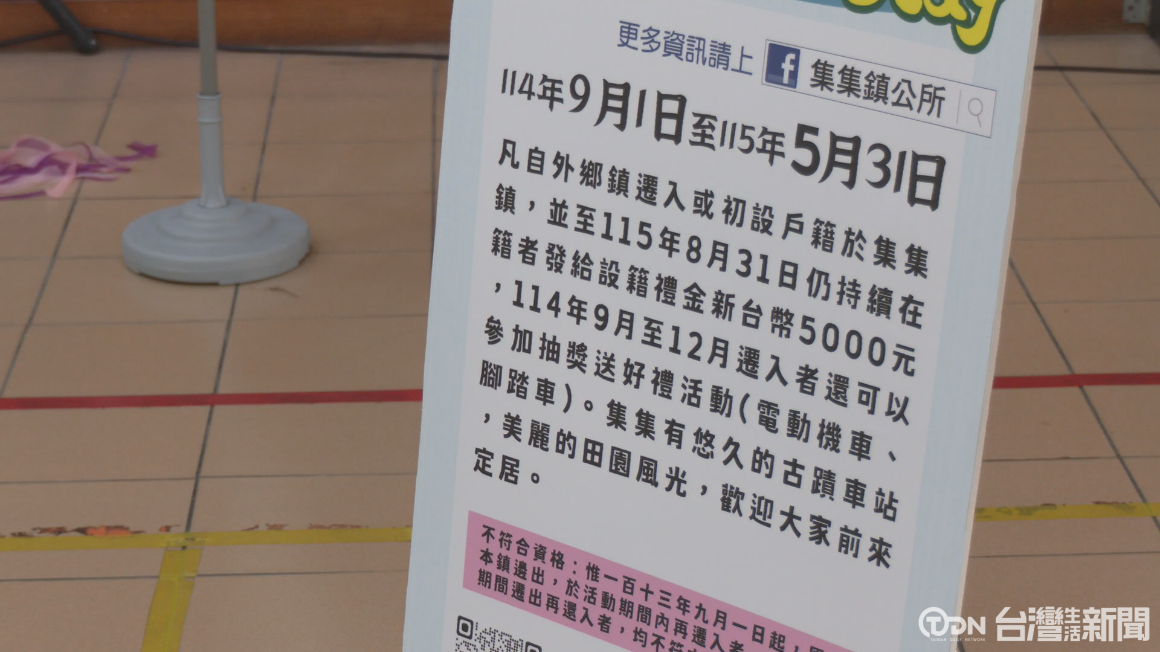 更多資訊請上 f 集集鎮公所
114年9月1日至115年5月31日
凡自外鄉鎮遷入或初設戶籍於集集
鎮，並至115年8月31日仍持續在
籍者發給設籍禮金新台幣5000元
，114年9月至12月遷入者還可以
參加抽獎送好禮活動(電動機車、
腳踏車)。集集有悠久的古蹟車站
，美麗的田園風光，歡迎大家前來
定居。
不符合資格：惟一百十三年九月一日起，
本鎮遷出，於活動期間內再遷入者
期間遷出再遷入者，均不符
TDN 台灣生活新聞
TAIWAN DAILY NETWORK